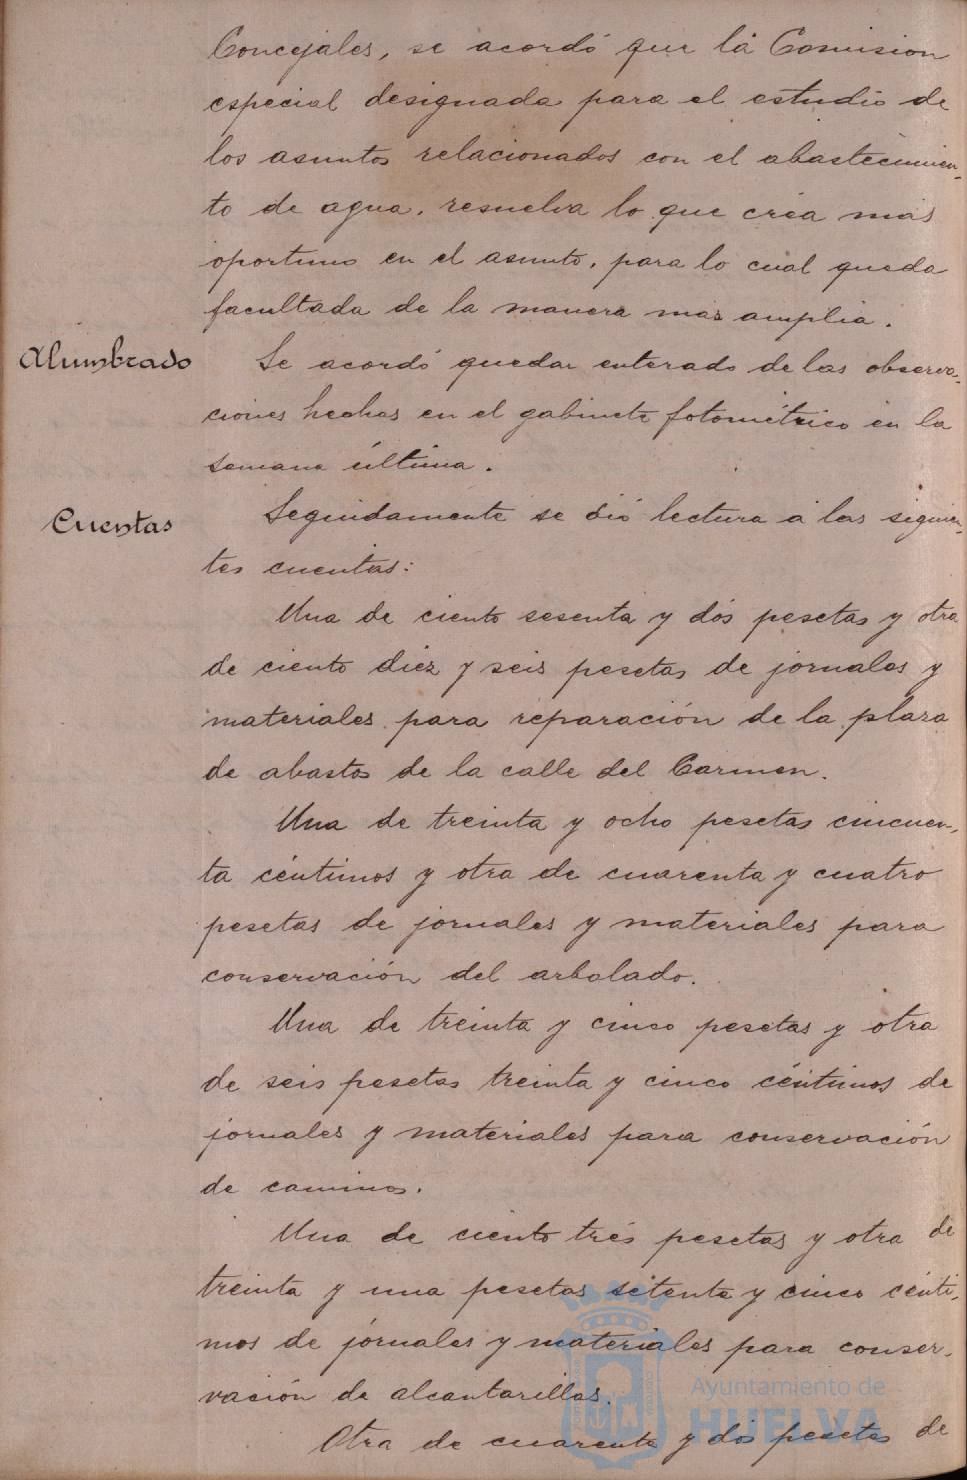 Concejales, se acordó que la Comision
especial designada para el estudio de
los asuntos relacionados con el abastecimien-
to de agua, resuelva lo que crea mas
oportuno en el asunto, para lo cual queda
facultada de la manera mas amplia.
Alumbrado
Se acordó quedar enterado de las observa-
ciones hechas en el gabinete fotométrico en la
semana última.
Cuentas
Seguidamente se dió lectura á las siguien-
tes cuentas:
Una de ciento sesenta y dós pesetas y otra
de ciento diez y seis pesetas de jornales y
materiales para reparación de la plaza
de abastos de la calle del Carmen.
Una de treinta y ocho pesetas cincuen-
ta céntimos y otra de cuarenta y cuatro
pesetas de jornales y materiales para
conservación del arbolado.
Una de treinta y cinco pesetas y otra
de seis pesetas treinta y cinco céntimos de
jornales y materiales para conservación
de caminos.
Una de ciento trés pesetas y otra de
treinta y una pesetas setenta y cinco cénti-
mos de jornales y materiales para conser-
vación de alcantarillas.
Otra de cuarenta y dos pesetas de
Ayuntamiento de
HUELVA